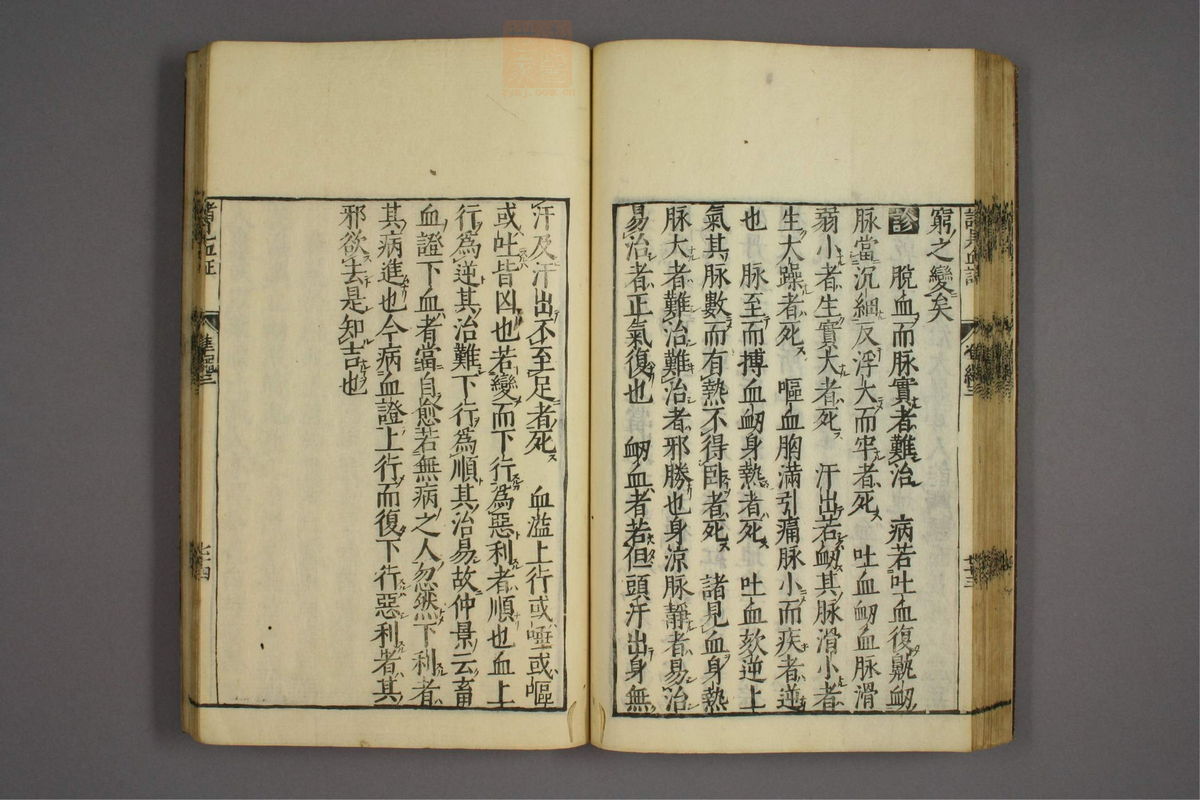 窮之變矣
診 脫血而脈實者難治 病若吐血復鼽衂
脈當沉細反浮大而牢者死 吐血衂血脈滑
弱小者生實大者死 汗出若衂其脈滑小者
生大躁者死 嘔血胸滿引痛脈小而疾者逆
也 脈至而搏血衂身熱者死 吐血欬逆上
氣其脈數而有熱不得臥者死 諸見血身熱
脈大者難治難治者邪勝也身涼脈靜者易治
易治者正氣復也 衂血者若但頭汗出身無
汗及汗出不至足者死 血溢上行或唾或嘔
或吐皆凶也若變而下行爲惡利者順也血上
行爲逆其治難下行爲順其治易故仲景云畜
血證下血者當自愈若無病之人忽然下利者
其病進也今病血證上行而復下行惡利者其
邪欲去是知吉也